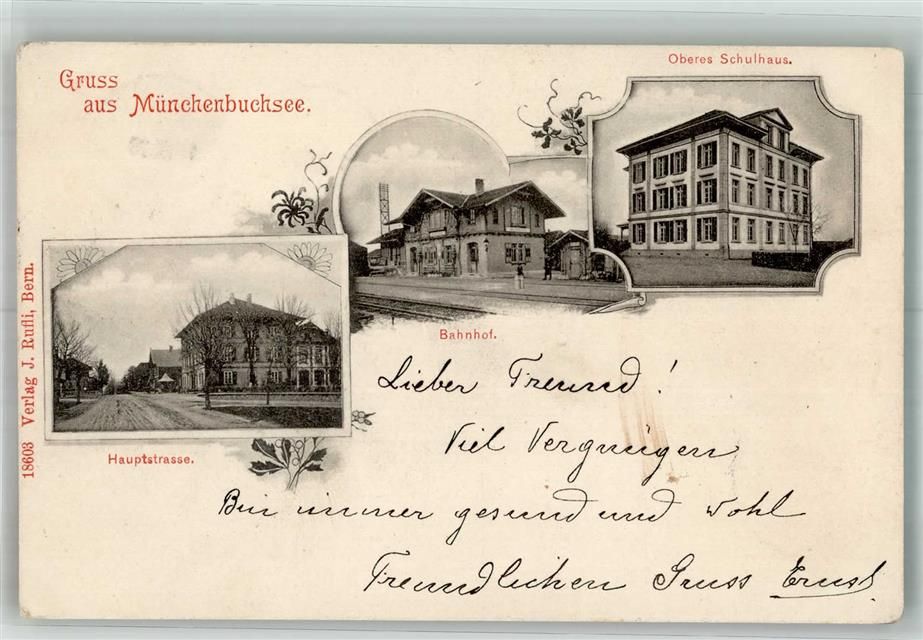 Gruss
aus Münchenbuchsee.
Oberes Schulhaus.
Bahnhof.
Hauptstrasse.
18603 Verlag J. Rufli, Bern.
Lieber Freund!
Viel Vergnügen
Bin immer gesund und wohl
Freundlichen Gruss Ernst